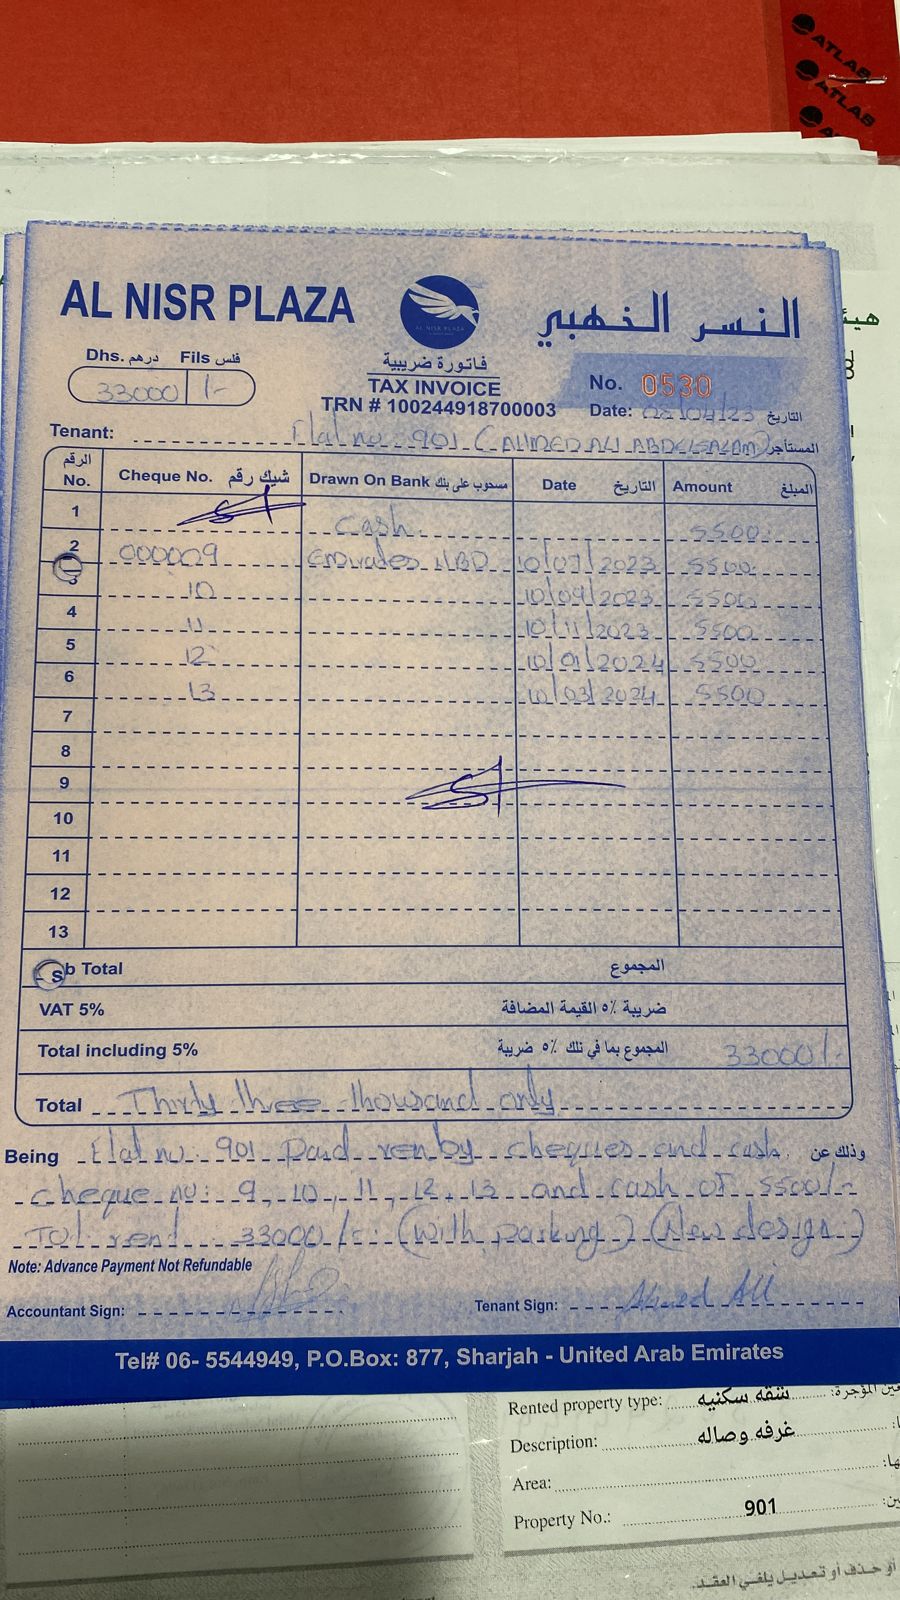 ATLAB
ATLAB
AL NISR PLAZA
AL NISR PLAZA
النسر الذهبي
Dhs. درهم Fils فلس
33000 /-
فاتورة ضريبية
TAX INVOICE
TRN # 100244918700003
No. 0530
Date: 08/04/23 التاريخ
Tenant: Flat no: 901 (AHMED ALI ABDELSALAM) المستأجر
الرقم No. Cheque No. شيك رقم Drawn On Bank مسحوب على بنك Date التاريخ Amount المبلغ
1 Cash. 5500
2 000009 Emirates NBD 10/07/2023 5500
3 10 10/09/2023 5500
4 11 10/11/2023 5500
5 12 10/01/2024 5500
6 13 10/03/2024 5500
7
8
9
10
11
12
13
Sb Total المجموع
VAT 5% ضريبة ٥٪ القيمة المضافة
Total including 5% المجموع بما في ذلك ٥٪ ضريبة 33000/-
Total Thirty three thousand only
Being Flat no: 901 Paid ren by cheques and cash. وذلك عن
cheque no: 9, 10, 11, 12, 13 and cash of 5500/-
Tot rent 33000/- (with parking) (New design)
Note: Advance Payment Not Refundable
Accountant Sign:
Tenant Sign: Ahmed Ali
Tel# 06- 5544949, P.O.Box: 877, Sharjah - United Arab Emirates
Rented property type: شقه سكنيه
Description: غرفه وصاله
Area:
Property No.: 901
أو حذف أو تعديل يلغي العقد.